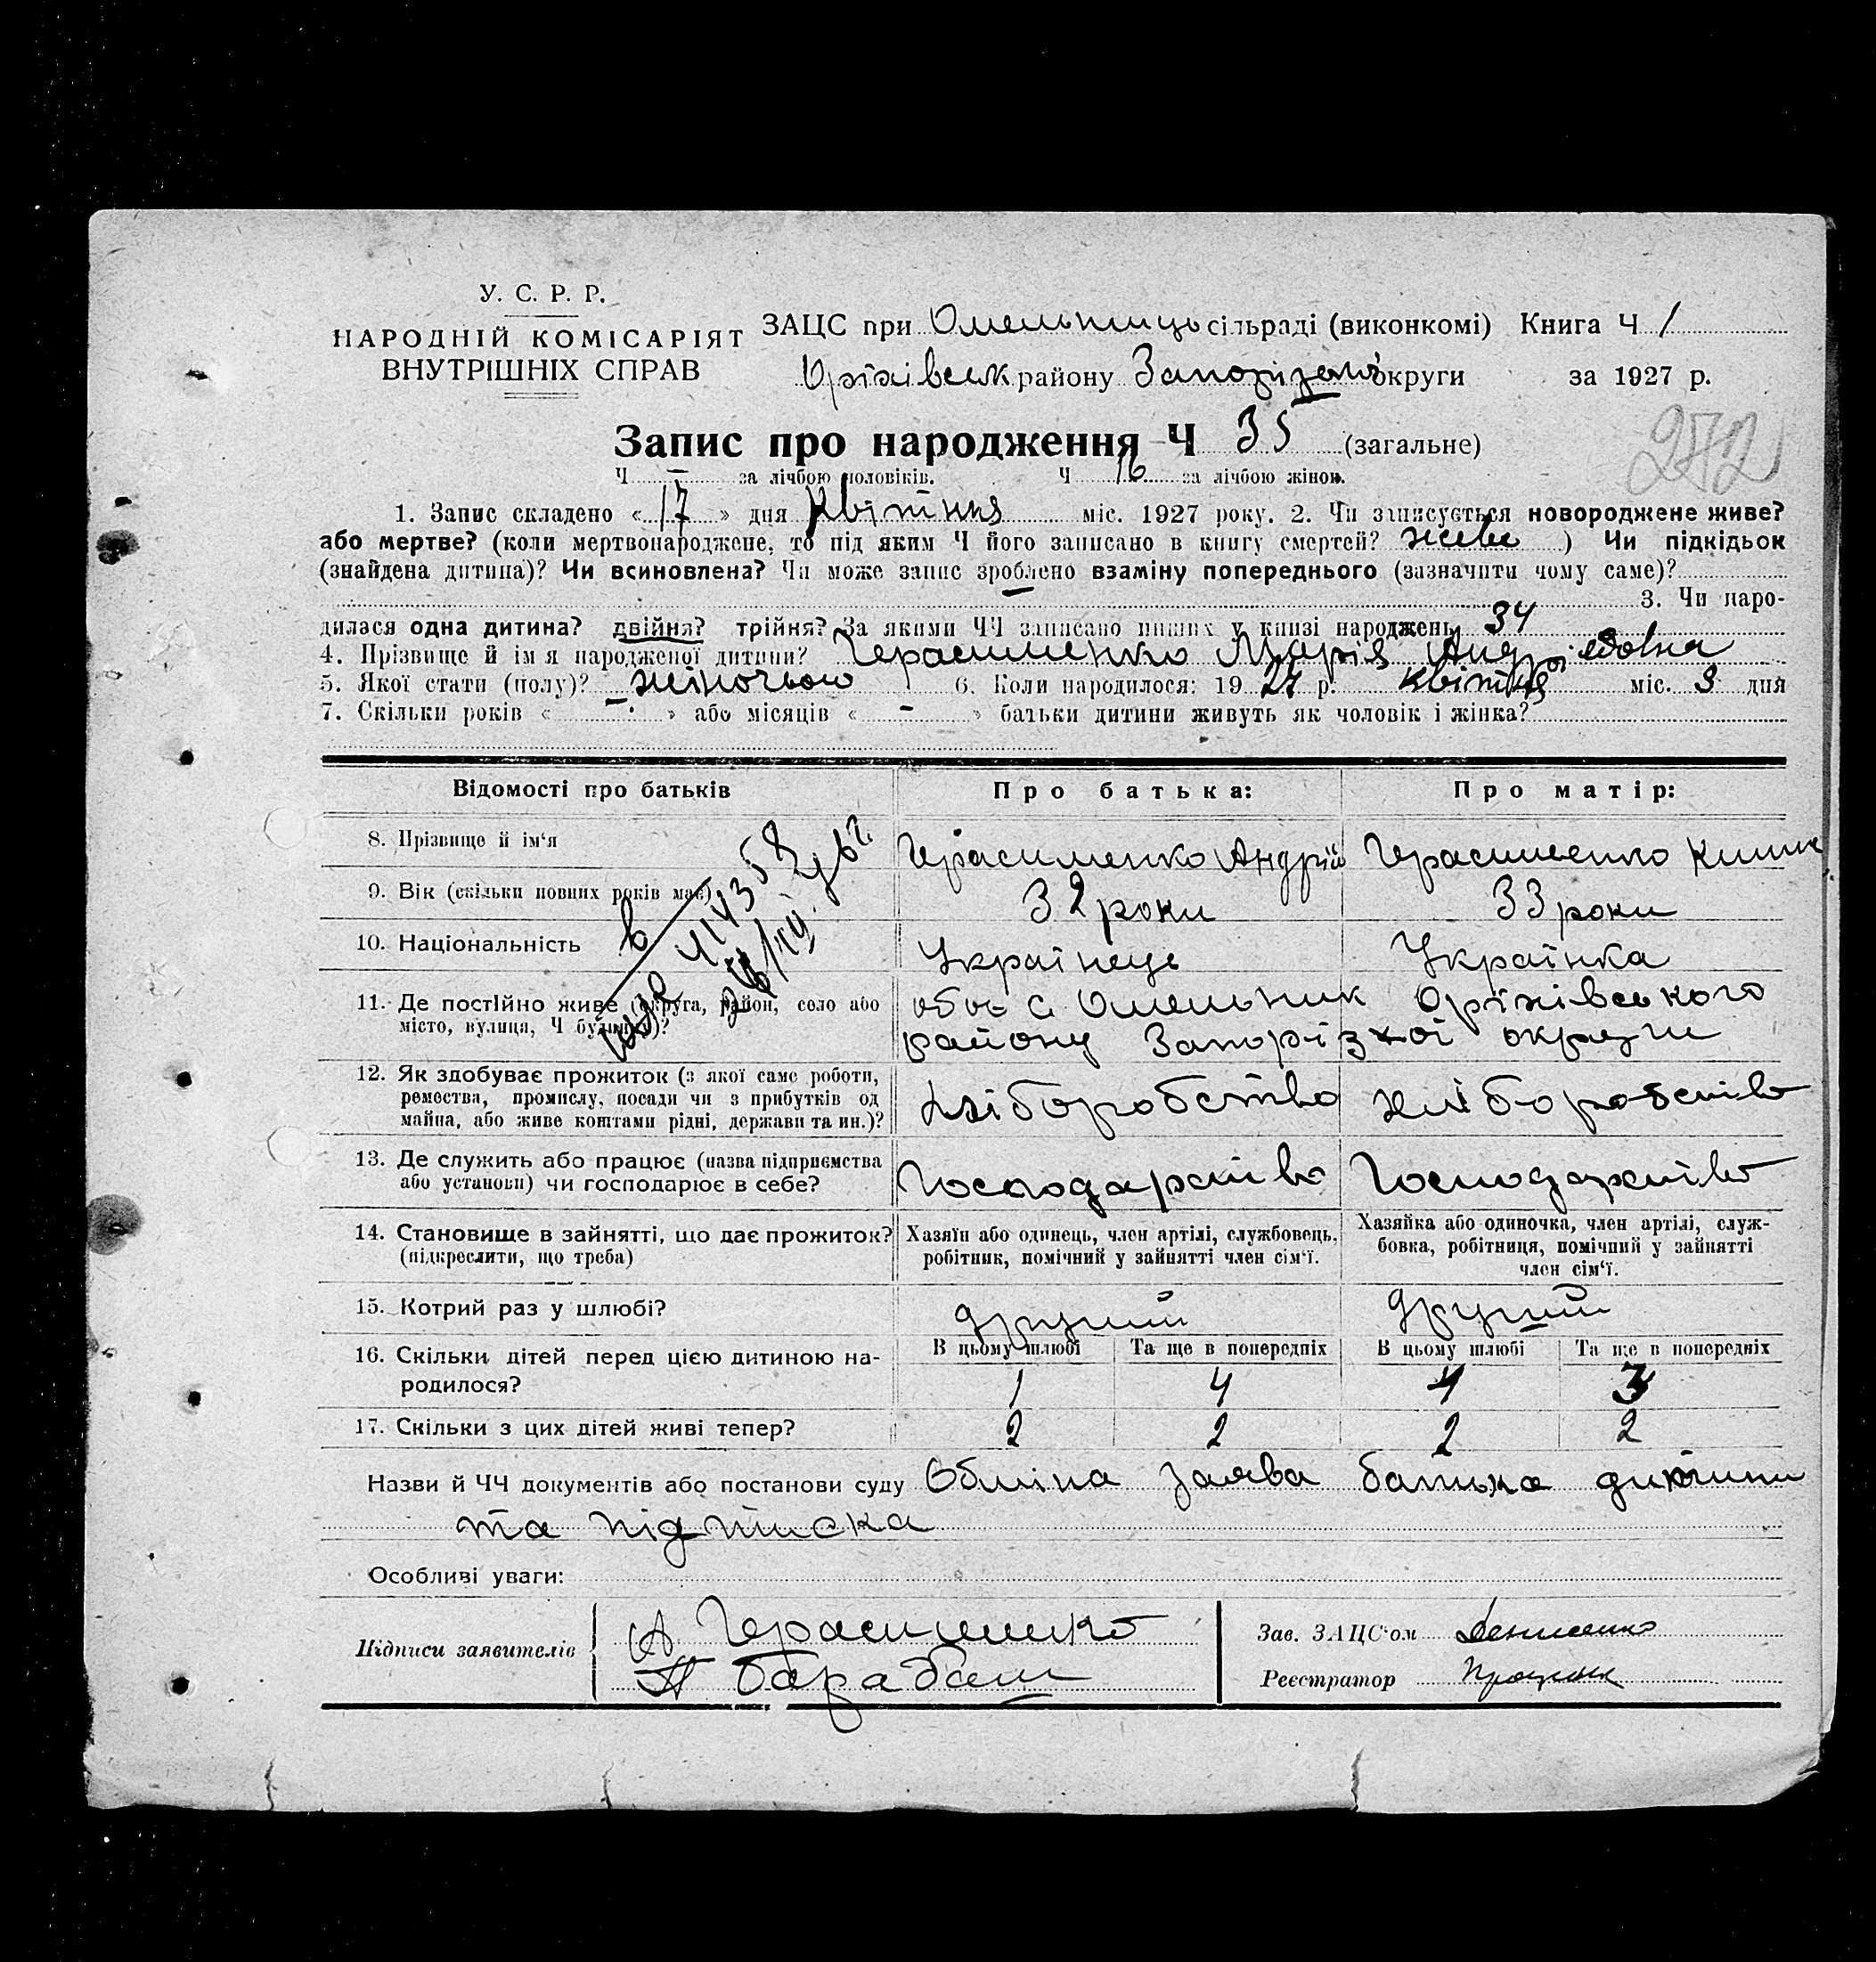 У. С. Р. Р.
НАРОДНІЙ КОМІСАРІЯТ
ВНУТРІШНІХ СПРАВ
ЗАЦС при Омельниць сільраді (виконкомі) Книга Ч 1
Оріхівськ району Запорізької округи за 1927 р.
Запис про народження Ч 35 (загальне)
272
Ч - за лічбою чоловіків. Ч 16 за лічбою жінок.
1. Запис складено «17» дня Квітня міс. 1927 року. 2. Чи записується новороджене живе?
або мертве? (коли мертвонароджене, то під яким Ч його записано в книгу смертей? живе ) Чи підкідьок
(знайдена дитина)? Чи всиновлена? Чи може запис зроблено взаміну попереднього (зазначити чому саме)?
3. Чи наро-
дилася одна дитина? двійня? трійня? За якими ЧЧ записано инших у книзі народжень 34
4. Прізвище й ім я народженої дитини? Герасименко Марія Андріївна
5. Якої стати (полу)? жіночою 6. Коли народилося: 1927 р. квітня міс. 3 дня
7. Скільки років « - » або місяців « - » батьки дитини живуть як чоловік і жінка?
Відомості про батьків Про батька: Про матір:
8. Прізвище й ім'я Герасименко Андрій Герасименко
9. Вік (скільки повних років має) 32 роки 33 роки
10. Національність Українець Українка
11. Де постійно живе (округа, район, село або
місто, вулиця, Ч будинку)?
обоє с. Омельник Оріхівського
району Запорізкої округи
12. Як здобуває прожиток (з якої саме роботи,
ремества, промислу, посади чи з прибутків од
майна, або живе коштами рідні, держави та ин.)?
хліборобство хліборобство
13. Де служить або працює (назва підприємства
або установи) чи господарює в себе?
Господарство Господарство
14. Становище в зайнятті, що дає прожиток?
(підкреслити, що треба)
Хазяїн або одинець, член артілі, службовець,
робітник, помічний у зайнятті член сім'ї.
Хазяйка або одиночка, член артілі, служ-
бовка, робітниця, помічний у зайнятті
член сім'ї.
15. Котрий раз у шлюбі? другий другий
В цьому шлюбі Та ще в попередніх В цьому шлюбі Та ще в попередніх
16. Скільки дітей перед цією дитиною на-
родилося?
1 4 4 3
17. Скільки з цих дітей живі тепер? 2 2 2 2
Назви й ЧЧ документів або постанови суду Обміна заява батька дитини
та підписка
Особливі уваги:
Підписи заявителів
А Герасименко
П Барабаш
Зав. ЗАЦС'ом Денисенко
Реєстратор